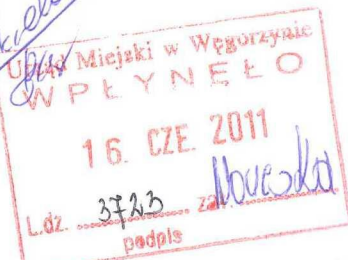 Urząd Miejski w Węgorzynie
WPŁYNĘŁO
16. CZE. 2011
L.dz. 3723 zał.
podpis